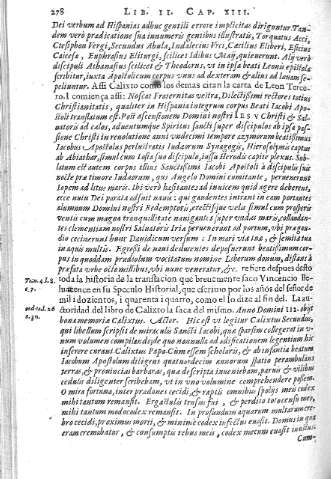 278 LIB. II. CAP. XIII.
Dei verbum ad Hispanias adhuc gentili errore implicitas diriguntur. Tan-
dem verò prædicatione sua innumeris gentibus illustratis, Torquatus Acci,
Ctesiphon Vergi, Secundus Abula, Indalecius Vrci, Cæcilius Eliberi, Esicius
Carcesa, Euphrasius Eliturgi, scilicet Idibus Maij, quieuerunt. Alij verò
discipuli Athanasius scilicet & Theodorus, vt in ipsa beati Leonis epistola
scribitur, iuxta Apostolicum corpus vnus ad dexteram & alius ad læuam se-
peliuntur. Assi Calixto como los demas citan la carta de Leon Terce-
ro. I comiença assi: Noscat Fraternitas vestra, Dilectissimi rectores totius
Christianitatis, qualiter in Hispania integrum corpus Beati Iacobi Apo-
stoli translatum est. Post ascensionem Domini nostri IESV Christi & Sal-
uatoris ad cælos, aduentumque Spiritus sancti super discipulos ab ipsa pas-
sione Christi in reuolutione anni vndecimi tempore azymorum beatissimus
Iacobus Apostolus perlustratis Iudæorum Synagogis, Hierosolymis captus
ab Abiathar, simul cum Iosia suo discipulo, iussu Herodis capite plexus. Sub-
latum est autem corpus illius Sanctissimi Iacobi Apostoli à discipulis suis
nocte præ timore Iudæorum, qui Angelo Domini comitante, peruenerunt
Iopem ad litus maris. Ibi verò hæsitantes ad inuicem quid agere deberent,
ecce nutu Dei parata adfuit nauis: qui gaudentes intrant in eam portantes
alumnum Domini nostri Redemptoris, erectisque velis simul cum prosperis
ventis cum magna tranquilitate nauigantes super vndas maris, collaudan-
tes clementiam nostri Saluatoris Iriæ peruenerunt ad portum, vbi præ gau-
dio cecinerunt hunc Dauidicum versum: In mari via tua, & semitæ tuæ
in aquis multis. Egressi de naui deducentes deposuerunt beatissimum cor-
pus in quoddam prædiolum vocitatum nomine Liberum donum, distans à
præfata vrbe octo millibus, vbi nunc veneratur, &c. refiere despues desto
toda la historia de la translacion que breuemente saco Vincencio Be-
luacense en su Speculo Historial, que escriuio por los años del señor de
mil i dozientos, i quarenta i quatro, como el lo dize al fin del. La au-
doridad del libro de Calixto la saca del mismo. Anno Domini
memoria Calixtus. Actor. Hic est vt legitur Calixtus Secundus,
qui libellum scripsit de miraculis Sancti Iacobi, quæ sparsim collegerat in v-
num volumen compilando
inserere curaui. Calixtus Papa. Cum essem scholaris, & ab infantia beatum
Iacobum Apostolum diligens quatuordecim annorum spatio perambulans
terras, & prouincias barbaras, quæ de scripta inueniebam, paruis & vilibus
cedulis diligenter scribebam, vt in vno volumine comprehendere possem.
O mira fortuna, inter prædones cecidi, & raptis omnibus spolijs meis codex
mihi tantum remansit. Ergastulis trusus fui, & perdito toto censu meo,
mihi tantum modo codex remansit. In profundum aquarum multarum cre-
bro cecidi, proximus morti, & minimè codex infectus euasit. Domus in qua
eram cremabatur, & consumptis rebus meis, codex mecum euasit inustus.
Cum-